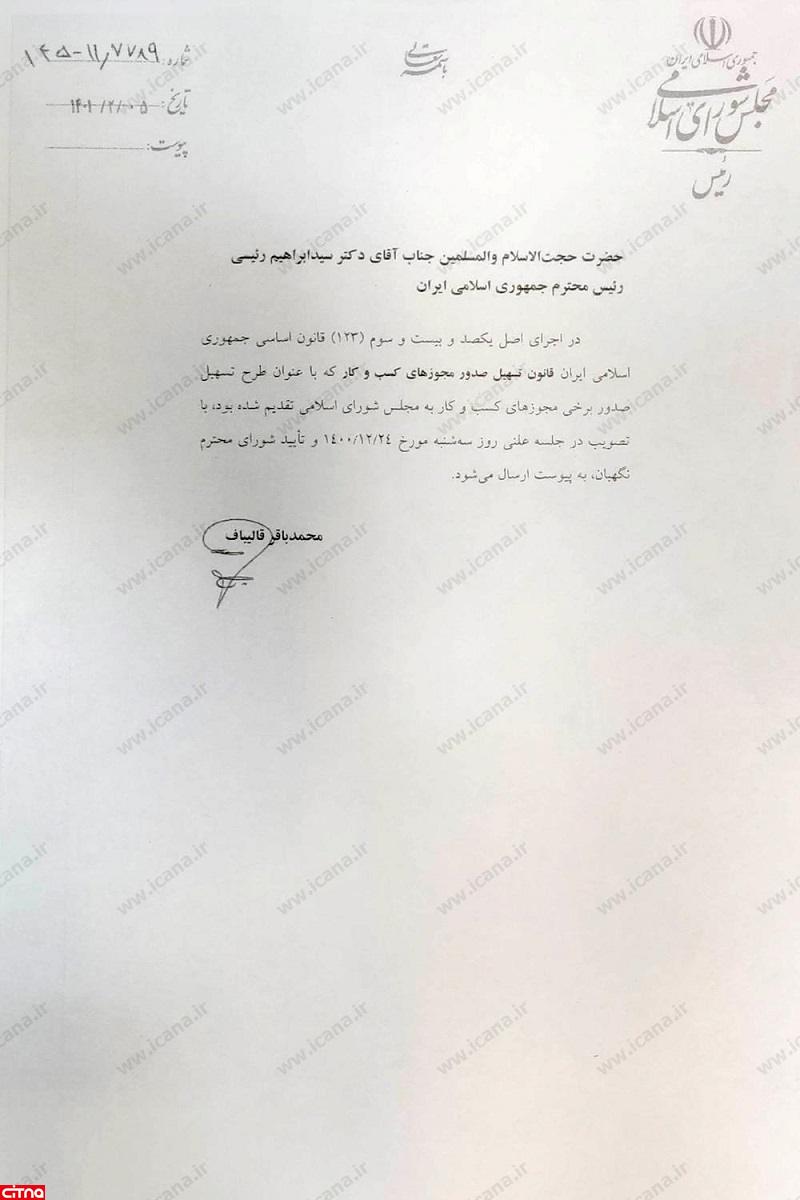 جمهوری اسلامی ایران
مجلس شورای اسلامی
رئیس
باسمه تعالی
شماره: ۱۴۵-۱۱/۷۷۸۹
تاریخ: ۱۴۰۱/۲/۰۵
پیوست:
حضرت حجت‌الاسلام والمسلمین جناب آقای دکتر سیدابراهیم رئیسی
رئیس محترم جمهوری اسلامی ایران
در اجرای اصل یکصد و بیست و سوم (۱۲۳) قانون اساسی جمهوری
اسلامی ایران قانون تسهیل صدور مجوزهای کسب و کار که با عنوان طرح تسهیل
صدور برخی مجوزهای کسب و کار به مجلس شورای اسلامی تقدیم شده بود، با
تصویب در جلسه علنی روز سه‌شنبه مورخ ۱۴۰۰/۱۲/۲۴ و تأیید شورای محترم
نگهبان، به پیوست ارسال می‌شود.
محمدباقر قالیباف
www.icana.ir
citna